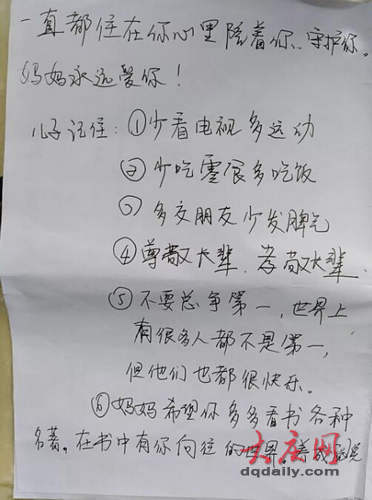 一直都住在你心里陪着你、守护你。
妈妈永远爱你！
儿子记住：①少看电视多运动
②少吃零食多吃饭
③多交朋友少发脾气
④尊敬长辈、孝敬长辈
⑤不要总争第一，世界上
有很多人都不是第一，
但他们也都很快乐。
⑥妈妈希望你多多看书各种
名著。在书中有你向往的世界
大庆网
dqdaily.com